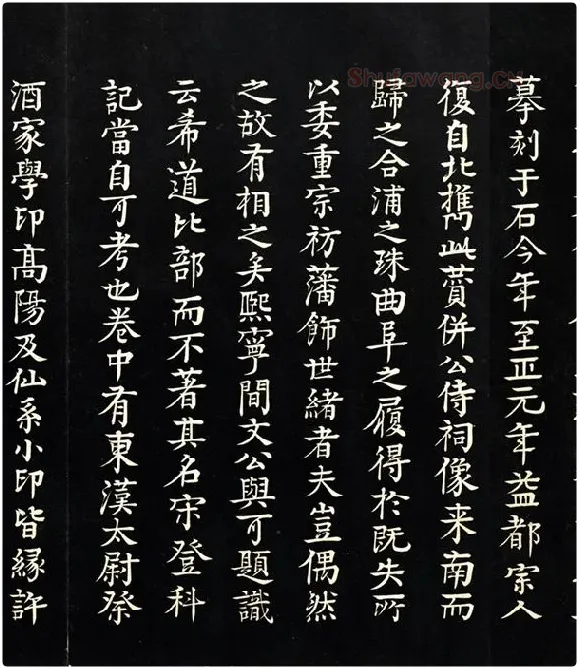 摹刻于石今年至正元年益都宗人
復自北擕此賛併公侍祠像来南而
歸之合浦之珠曲阜之履得於既失所
以委重宗祊藩飾世緒者夫豈偶然
之故有相之矣熙寧間文公與可題識
云希道比部而不著其名宋登科
記當自可考也卷中有東漢太尉祭
酒家學印髙陽及仙系小印皆縁許
Shufawang.CN